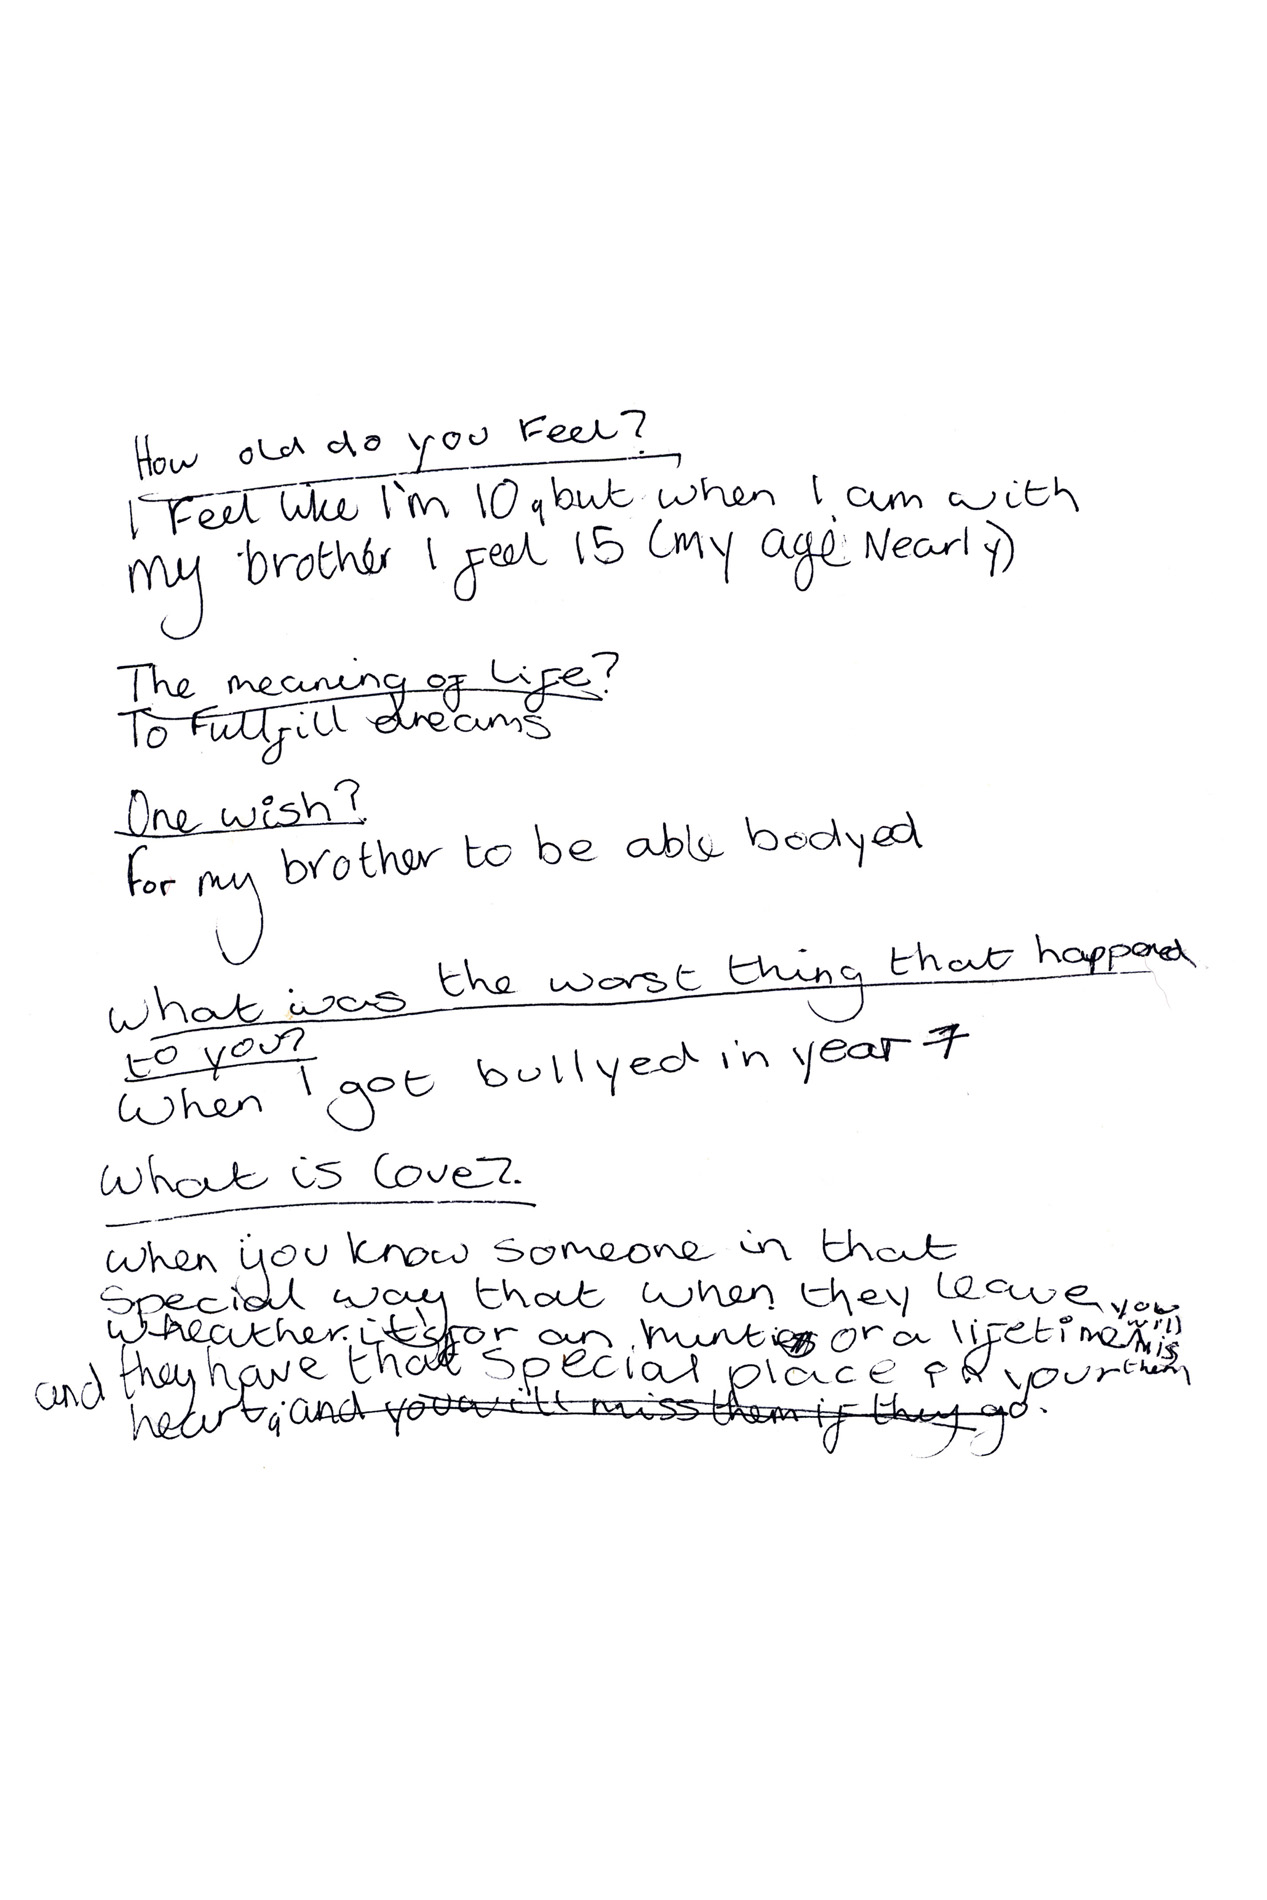 How old do you Feel?
I Feel like I'm 10, but when I am with
my brother I feel 15 (my age Nearly)
The meaning of Life?
To Fullfill dreams
One wish?
For my brother to be able bodyed
What was the worst thing that happend
to you?
When I got bullyed in year 7
What is Love?
When you know someone in that
special way that when they leave you
wheather it's for an or a lifetime will
miss
and they have that special place in your them
heart, and you will miss them if they go.